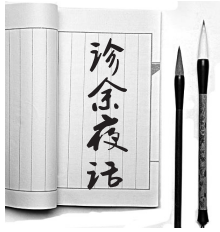 诊余夜话